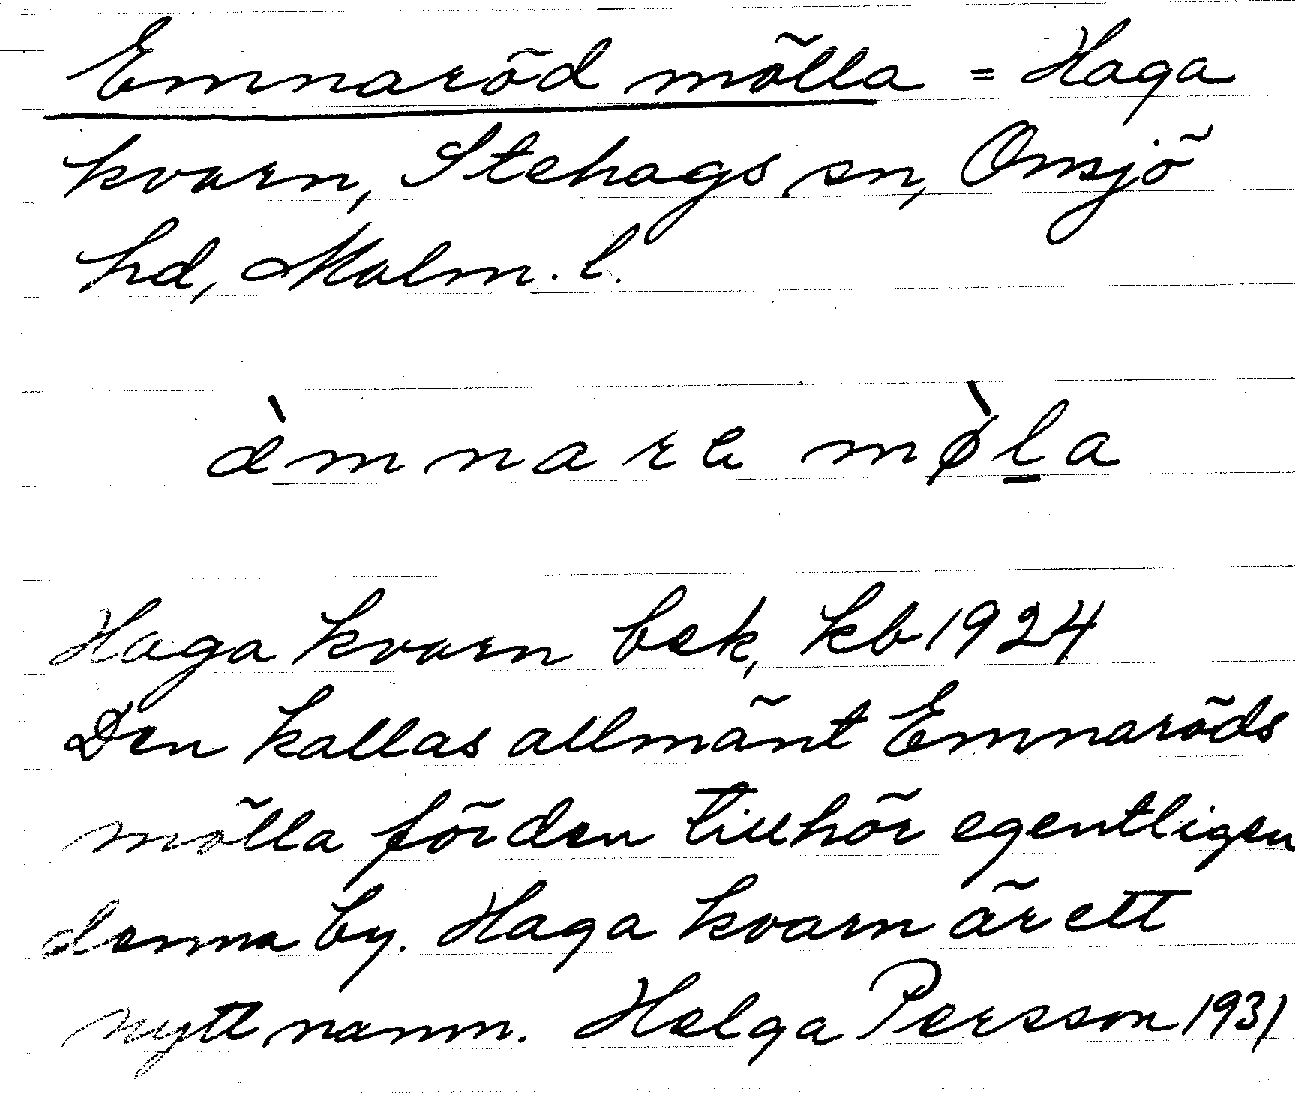 Emnaröd mölla = Haga
kvarn, Stehags sn, Onsjö
hd, Malm. l.
æ̀mnarɐ mø̀l̲a
Haga kvarn bek, kb 1924
Den kallas allmänt Emnaröds
mölla för den tillhör egentligen
denna by. Haga kvarn är ett
nytt namn. Helga Persson 1931